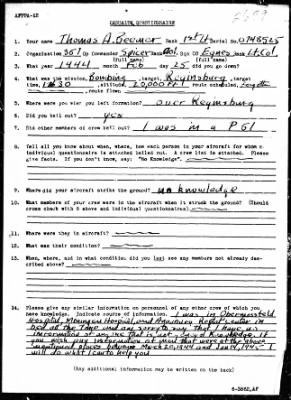 AFPPA-12
CASUALTY QUESTIONNAIRE
1. Your name Thomas A. Beemer Rank 1st Lt Serial No.
2. Organization 361 Gp Commander Spicer Rank Col. Sqn CO Rank Lt. Col.
(full name) (full name)
3. What year 1944 month Feb day 25 did you go down?
4. What was the mission, Bombing, target, Regensburg, target
time, 1230, altitude, 20,000 ft, route scheduled,
, route flown
5. Where were you when you left formation? over Regensburg
6. Did you bail out? yes
7. Did other members of crew bail out? I was in a P 51
8. Tell all you know about when, where, how each person in your aircraft for whom no
individual questionnaire is attached bailed out. A crew list is attached. Please
give facts. If you don't know, say: "No Knowledge".
9. Where did your aircraft strike the ground? no knowledge
10. What members of your crew were in the aircraft when it struck the ground? (Should
cross check with 8 above and individual questionnaires)
11. Where were they in aircraft?
12. What was their condition?
13. When, where, and in what condition did you last see any members not already des-
cribed above?
14. Please give any similar information on personnel of any other crew of which you
have knowledge. Indicate source of information. I was in
Hospital, Hospital, and
bed all the time and am sorry to say that I have no
information of any use that is not said Knowledge. If
you wish any information of men that were at the above
mentioned places between March 20, 1944 and Jan 14, 1945 - I
will do what I can to help you
(Any additional information may be written on the back)
6-3862, AF